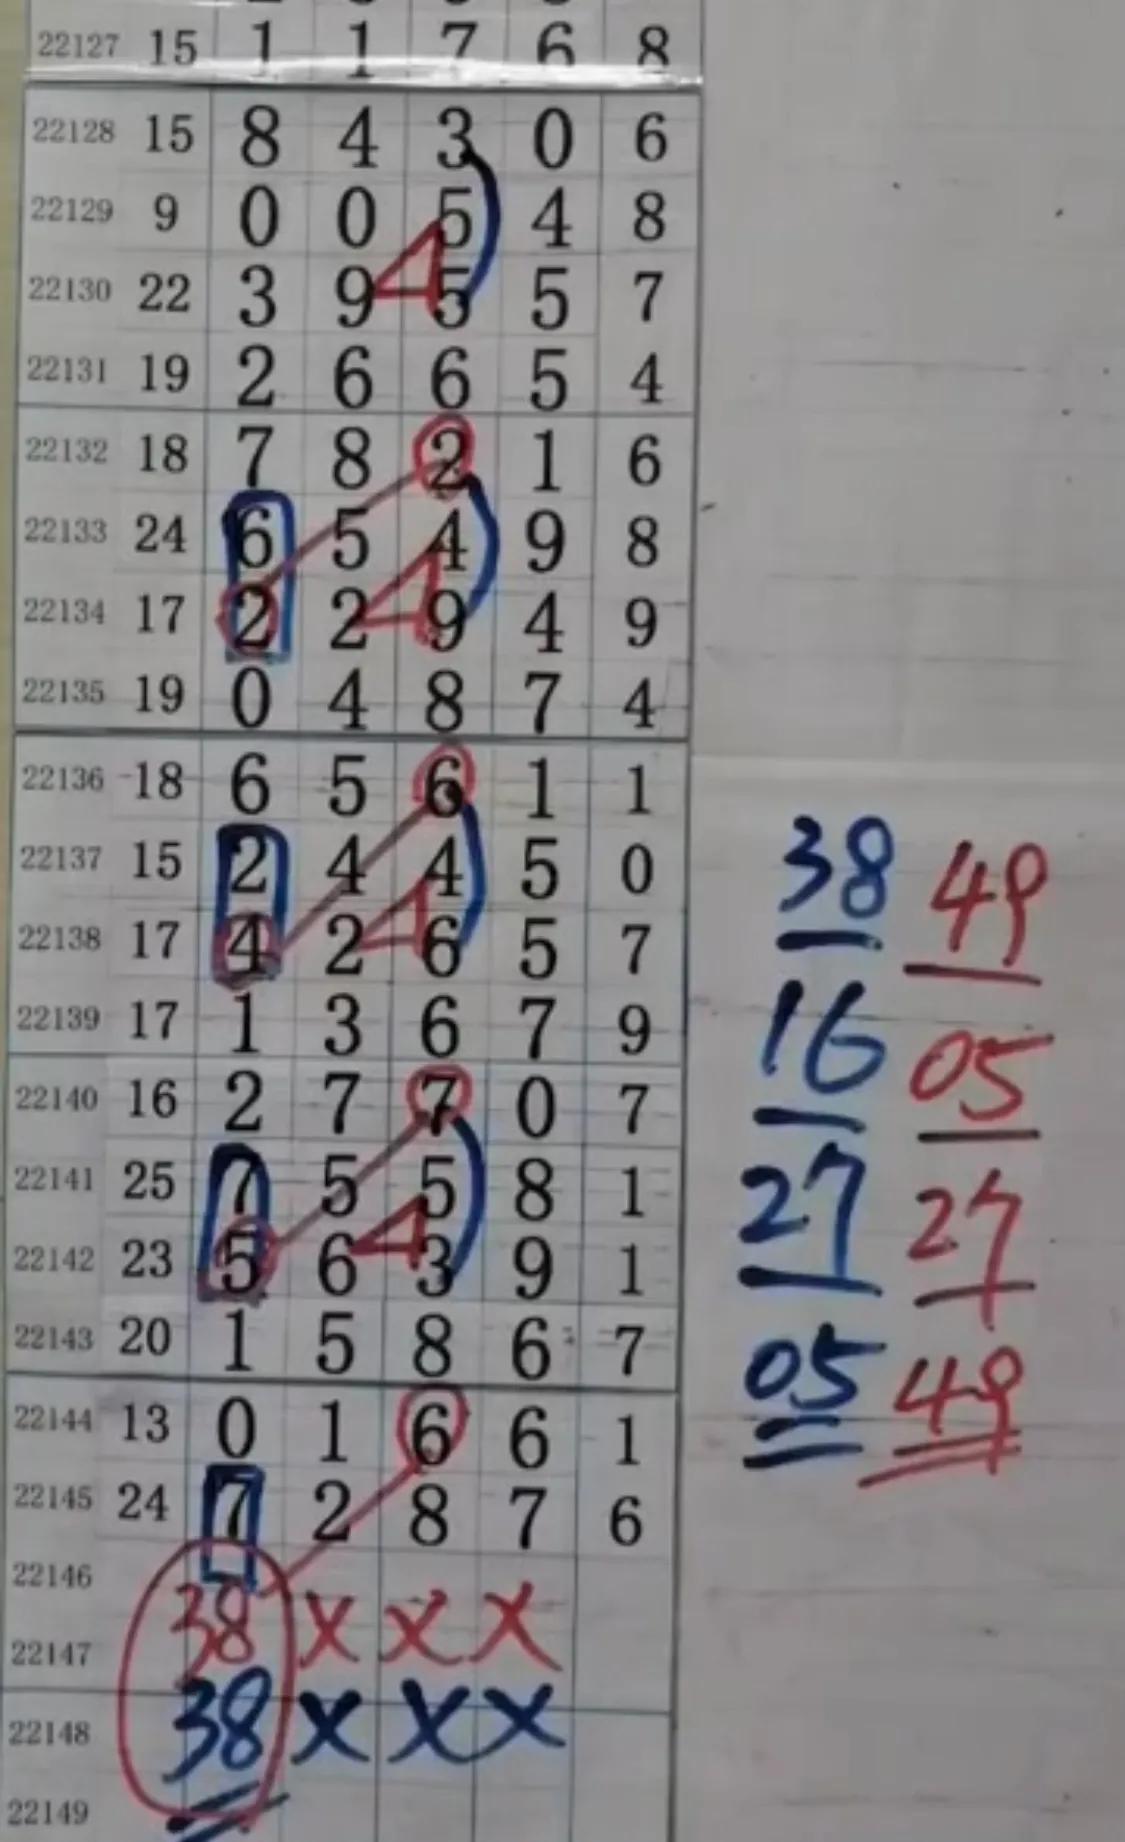 22127 15 1 1 7 6 8
22128 15 8 4 3 0 6
22129 9 0 0 5 4 8
22130 22 3 9 5 5 7
22131 19 2 6 6 5 4
22132 18 7 8 2 1 6
22133 24 6 5 4 9 8
22134 17 2 2 9 4 9
22135 19 0 4 8 7 4
22136 18 6 5 6 1 1
22137 15 2 4 4 5 0
38 49
22138 17 4 2 6 5 7
22139 17 1 3 6 7 9
16 05
22140 16 2 7 7 0 7
22141 25 7 5 5 8 1
27 27
22142 23 5 6 3 9 1
22143 20 1 5 8 6 7
05 49
22144 13 0 1 6 6 1
22145 24 7 2 8 7 6
22146
38 X X X
22147
38 X X X
22148
22149